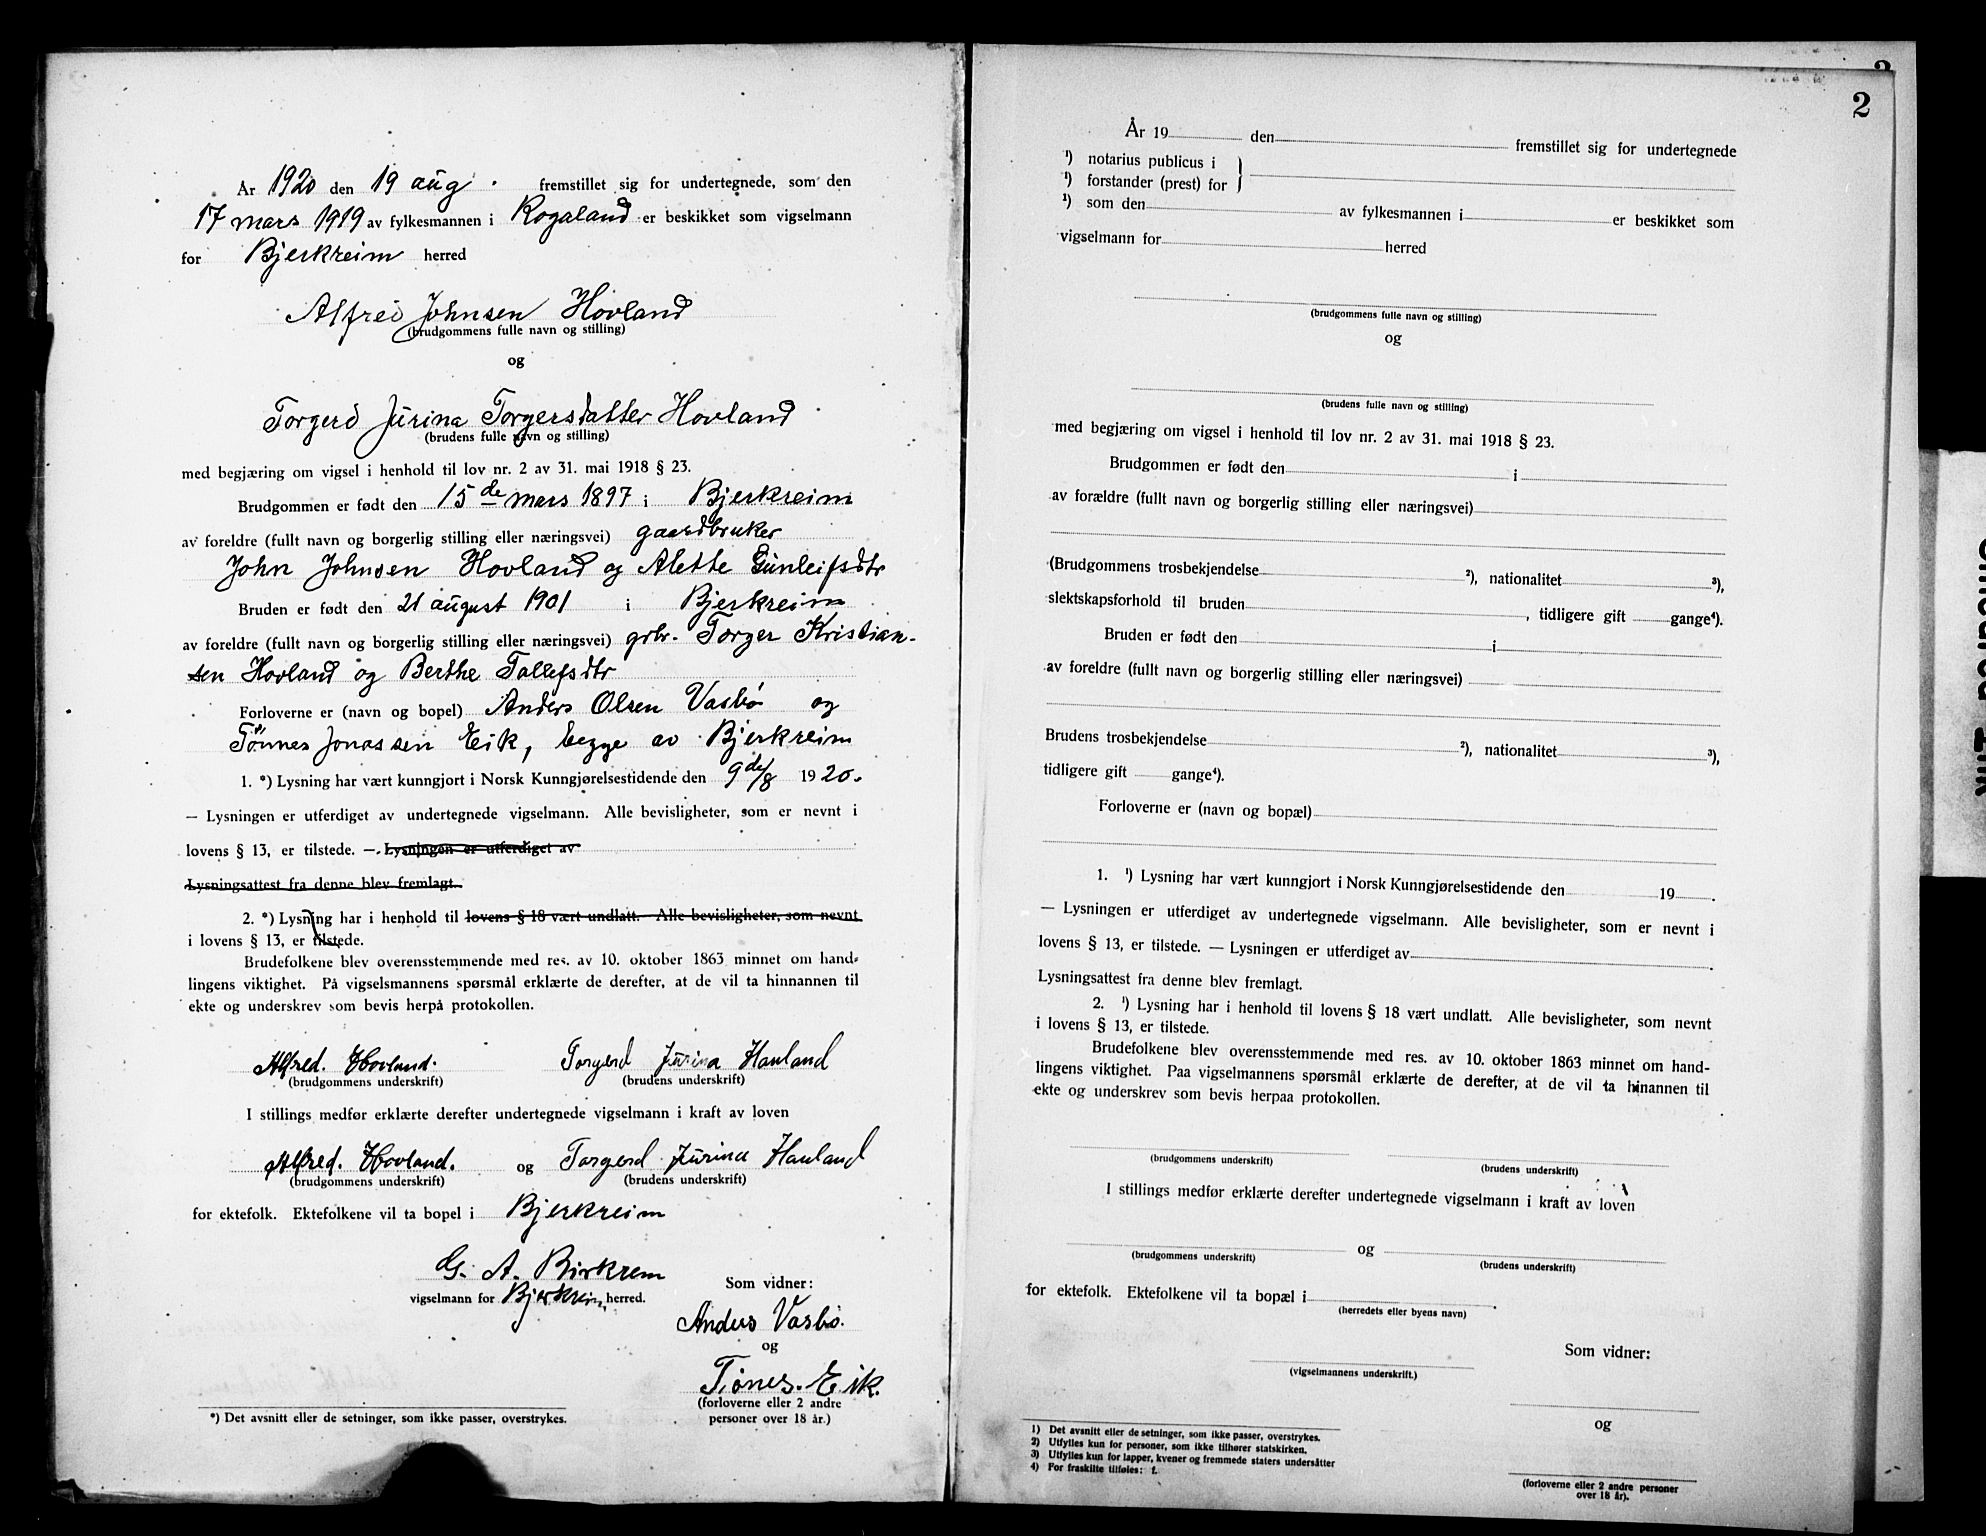 År 1920 den 19 aug. fremstillet sig for undertegnede, som den
17 mars 1919 av fylkesmannen i Rogaland er beskikket som vigselmann
for Bjerkreim herred
Alfred Johnsen Hovland
(brudgommens fulle navn og stilling)
og
Torgerd Jürina Torgersdatter Hovland
(brudens fulle navn og stilling)
med begjæring om vigsel i henhold til lov nr. 2 av 31. mai 1918 § 23.
Brudgommen er født den 15de mars 1897 i Bjerkreim
av foreldre (fullt navn og borgerlig stilling eller næringsvei) gaardbruker
John Johnsen Hovland og Alette Gunleifsdtr
Bruden er født den 21 august 1901 i Bjerkreim
av foreldre (fullt navn og borgerlig stilling eller næringsvei) grbr. Torger Kristian-
sen Hovland og Berthe Tallefsdtr
Forloverne er (navn og bopel) Anders Olsen Vasbø og
Tønnes Jonassen Eik, begge av Bjerkreim
1. *) Lysning har vært kunngjort i Norsk Kunngjørelsestidende den 9de/8 1920.
— Lysningen er utferdiget av undertegnede vigselmann. Alle bevisligheter, som er nevnt i
lovens § 13, er tilstede. — Lysningen er utferdiget av
Lysningsattest fra denne blev fremlagt.
2. *) Lysning har i henhold til lovens § 18 vært undlatt. Alle bevisligheter, som nevnt
i lovens § 13, er tilstede.
Brudefolkene blev overensstemmende med res. av 10. oktober 1863 minnet om hand-
lingens viktighet. På vigselsmannens spørsmål erklærte de derefter, at de vil ta hinnannen til
ekte og underskrev som bevis herpå protokollen.
Alfred. Hovland. Torgerd Jürina Hauland
(brudgommens underskrift) (brudens underskrift)
I stillings medfør erklærte derefter undertegnede vigselmann i kraft av loven
Alfred. Hovland. og Torgerd Jürina Hauland
(brudgommens underskrift) (brudens underskrift)
for ektefolk. Ektefolkene vil ta bopel i Bjerkreim
G. A. Birkrem
vigselmann for Bjerkreim herred.
Som vidner:
Anders Vasbø.
og
Tønes. Eik.
(forloverne eller 2 andre
personer over 18 år.)
*) Det avsnitt eller de setninger, som ikke passer, overstrykes.
2
År 19 den fremstillet sig for undertegnede
¹) notarius publicus i
¹) forstander (prest) for
¹) som den av fylkesmannen i er beskikket som
vigselmann for herred
(brudgommens fulle navn og stilling)
og
(brudens fulle navn og stilling)
med begjæring om vigsel i henhold til lov nr. 2 av 31. mai 1918 § 23.
Brudgommen er født den i
av forældre (fullt navn og borgerlig stilling eller næringsvei)
(Brudgommens trosbekjendelse ²), nationalitet ³),
slektskapsforhold til bruden , tidligere gift gange⁴).
Bruden er født den i
av foreldre (fullt navn og borgerlig stilling eller næringsvei)
Brudens trosbekjendelse ²), nationalitet ³),
tidligere gift gange⁴).
Forloverne er (navn og bopæl)
1. ¹) Lysning har vært kunngjort i Norsk Kunngjørelsestidende den 19 .
— Lysningen er utferdiget av undertegnede vigselmann. Alle bevisligheter, som er nevnt i
lovens § 13, er tilstede. — Lysningen er utferdiget av .
Lysningsattest fra denne blev fremlagt.
2. ¹) Lysning har i henhold til lovens § 18 vært undlatt. Alle bevisligheter, som nevnt
i lovens § 13, er tilstede.
Brudefolkene blev overensstemmende med res. av 10. oktober 1863 minnet om hand-
lingens viktighet. Paa vigselmannens spørsmål erklærte de derefter, at de vil ta hinannen til
ekte og underskrev som bevis herpaa protokollen.
(brudgommens underskrift) (brudens underskrift)
I stillings medfør erklærte derefter undertegnede vigselmann i kraft av loven
og
(brudgommens underskrift) (brudens underskrift)
for ektefolk. Ektefolkene vil ta bopæl i .
(herredets eller byens navn)
Som vidner:
(vigselmannens underskrift.)
og
(forloverne eller 2 andre personer
over 18 år).
1) Det avsnitt eller de setninger, som ikke passer, overstrykes.
2) Utfylles kun for personer, som ikke tilhører statskirken.
3) Utfylles kun for lapper, kvener og fremmede staters undersåtter
4) For fraskilte tilføies: f.